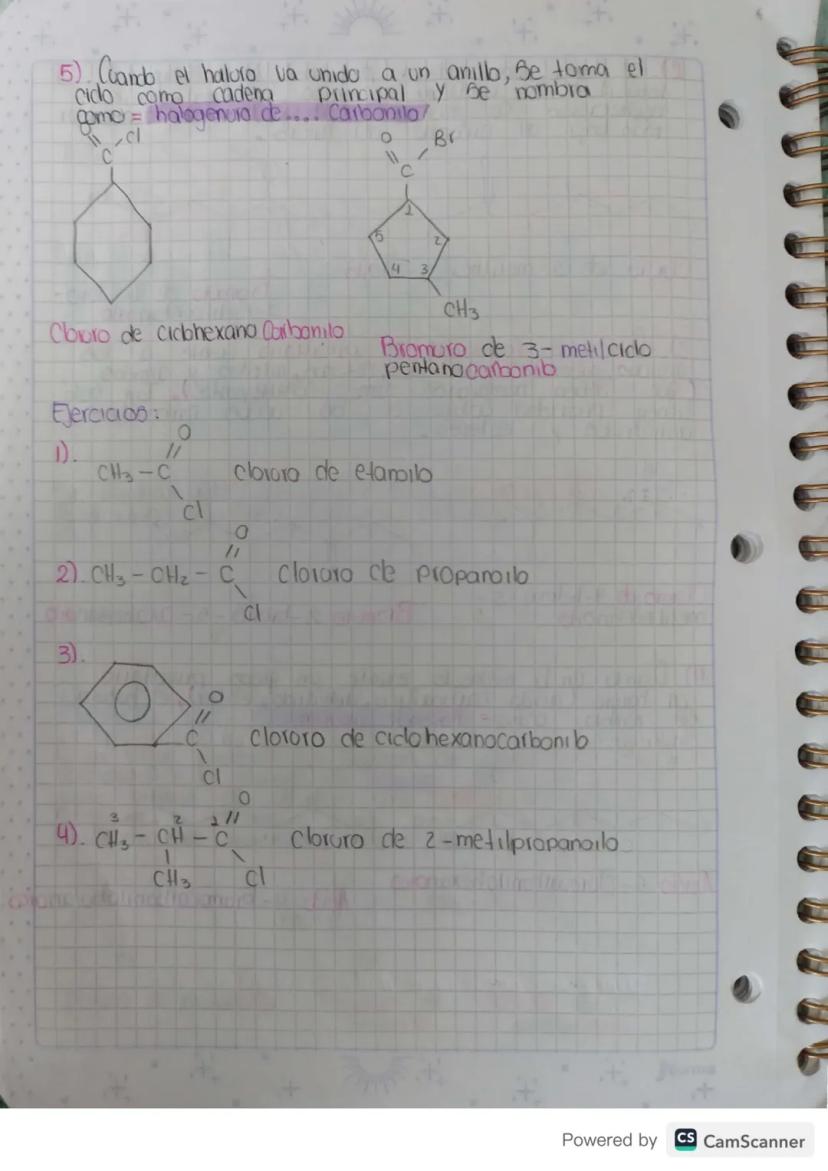 5). Cuando el haluro va unido a un anillo, se toma el
ciclo como cadena principal y se nombra
como = halogenuro de.... carbonilo/
O Cl
C
O Br
C
1
5 2
4 3
CH3
Cloruro de ciclohexano carbonilo
Bromuro de 3-metilciclo
pentanocarbonilo
Ejercicios:
O
1). CH3 - C cloruro de etanoilo
Cl
O
2). CH3 - CH2 - C cloruro de propanoilo
Cl
3).
O
C clororo de ciclohexanocarbonilo
Cl
O
3 2 1
4). CH3 - CH - C cloruro de 2-metilpropanoilo
CH3 Cl
Powered by CS CamScanner